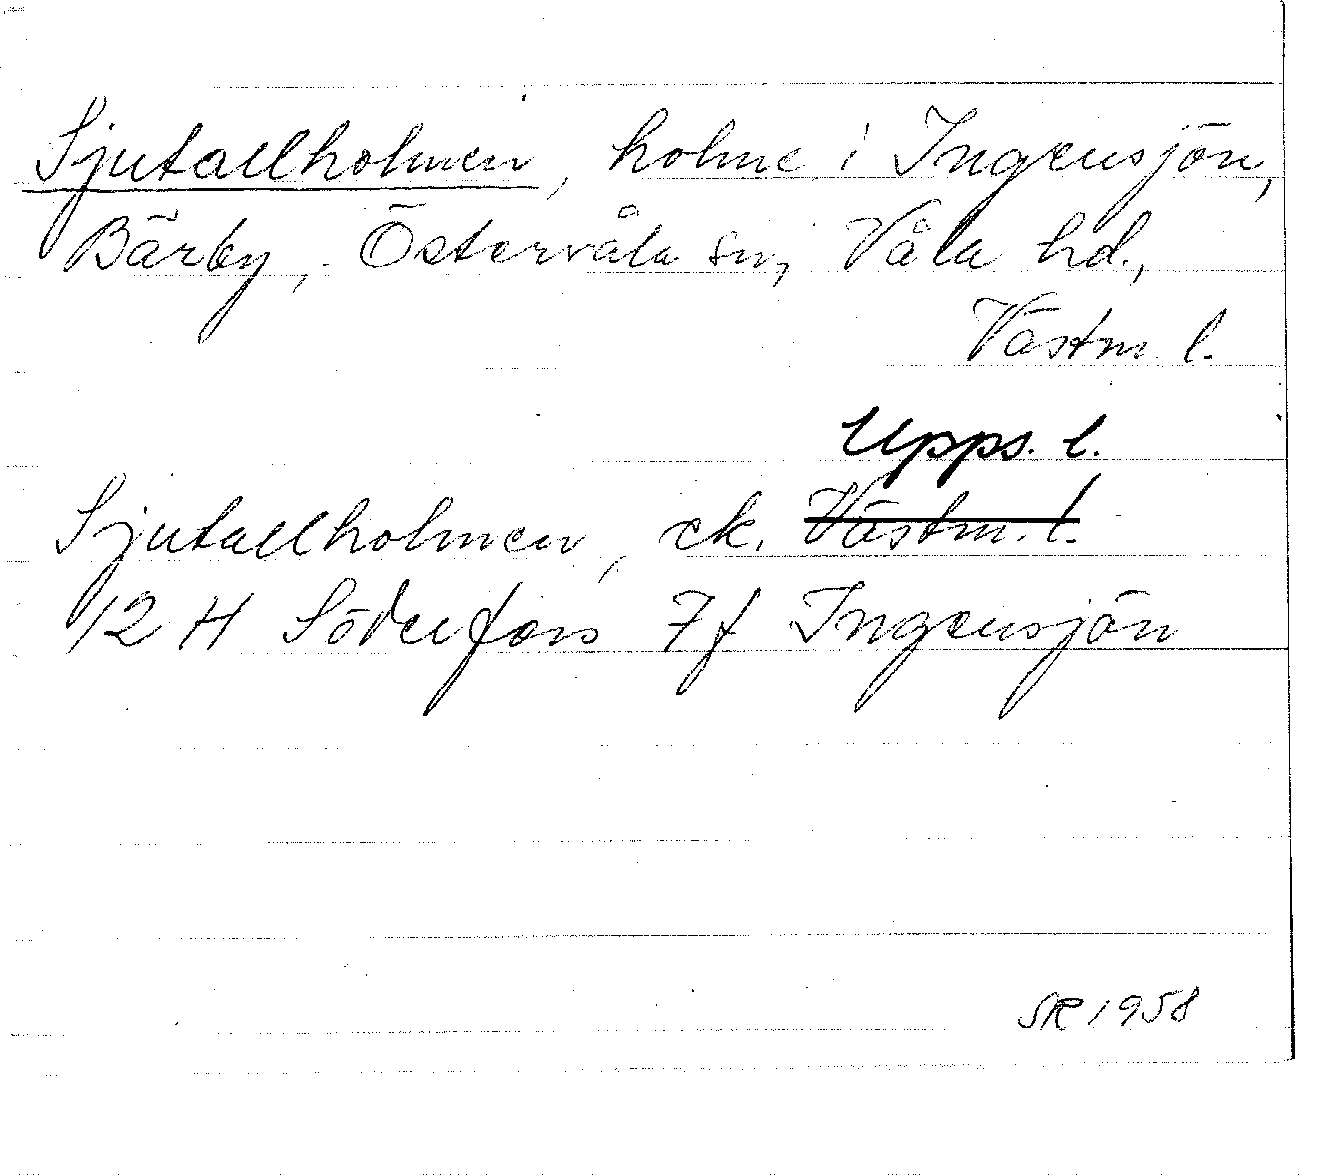 Sjutallholmen, holme i Ingensjön,
Bärby, Östervåla sn, Våla hd.,
Västm. l.
Upps. l.
Sjutallholmen, ek. Västm. l.
12 H Söderfors 7f Ingensjön
SR 1958